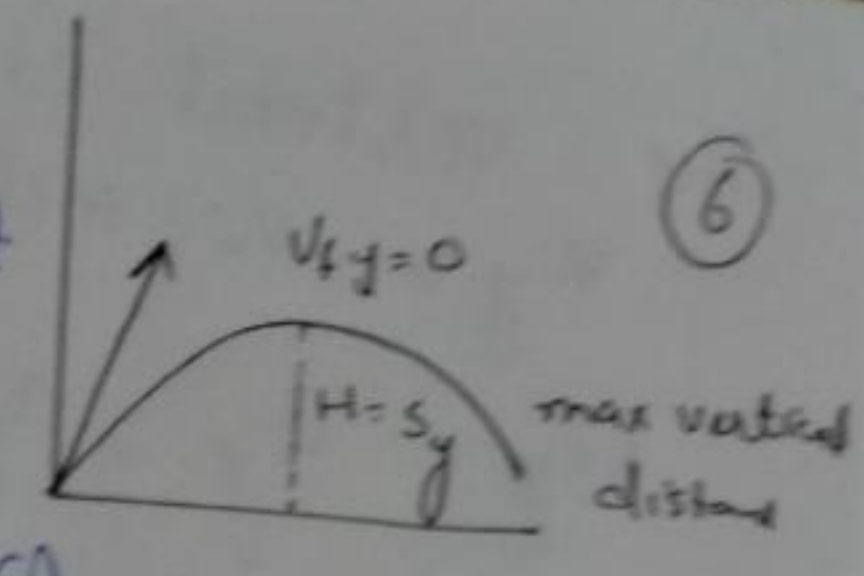 6
Vfy=0
H=Sy
max vertical
distand